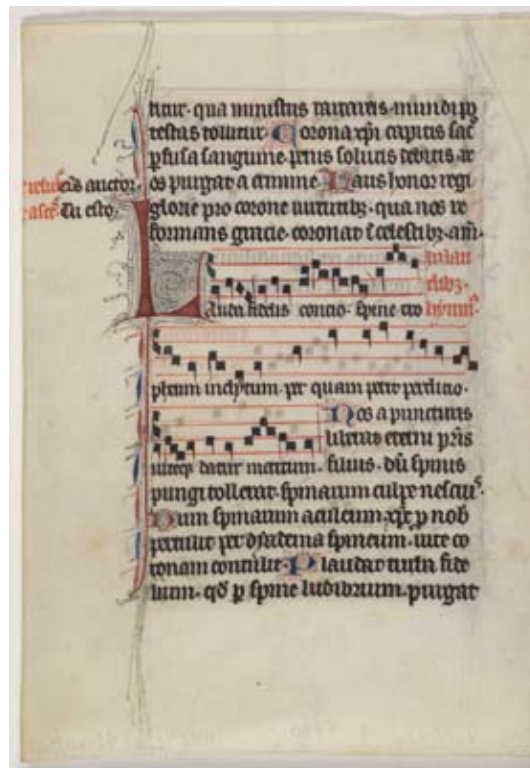 titur· qua ministris tartaris mundi po
testas tollitur Corona xpi capitis sac
pfusa sanguine penis solutis debitis re
os purgat a crimine Laus honor regi
glorie pro corone virtutibz· qua nos re
formans gracie· coronat i celestibz· am
Du esto
in lau
dibz·
hymn
Lauda fidelis concio· spine tro
pheum inclytum· per quam perit perditio·
Nos a puncturis
liberat eterni pris
viteqz datur meritum· filius· dū spinis
pungi tollerat· spinarum culpe nescius
Dum spinarum aculeum xpc p nob
pertulit per dyadema spineum· vite co
ronam contulit· Plaudat turba fide
lium· qd p spine ludibrium· purgat